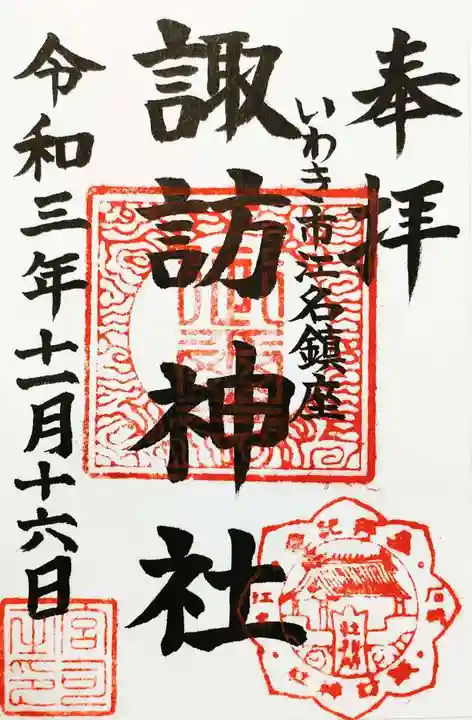 奉拝
いわき市江名鎮座
諏訪神社
令和三年十一月十六日
宮司之印